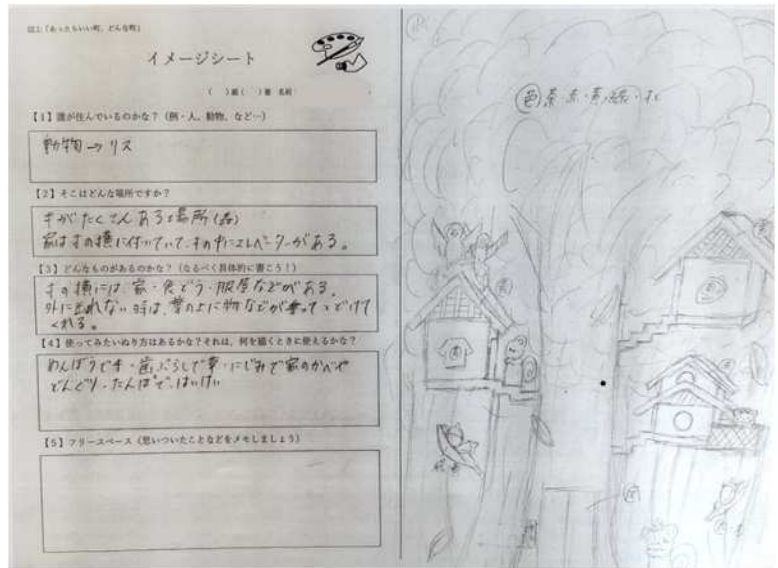 図工「あったらいい町、どんな町」
イメージシート
( )組( )番 名前
【1】誰が住んでいるのかな?(例・人、動物、など…)
動物→リス
【2】そこはどんな場所ですか?
木がたくさんある場所(森)
家は木の横に付いていて、木の中にエレベーターがある。
【3】どんなものがあるのかな?(なるべく具体的に書こう!)
木の横には、家・食どう・服屋などがある。
外に出れない時は、葉の上に物などが乗ってとどけて
くれる。
【4】使ってみたいぬり方はあるかな?それは、何を描くときに使えるかな?
めんぼうで木・歯ぶらしで葉・にじみで家のかべや
どんぐり・たんぽで、はいけい
【5】フリースペース(思いついたことなどをメモしましょう)
色 茶・赤・黄・緑